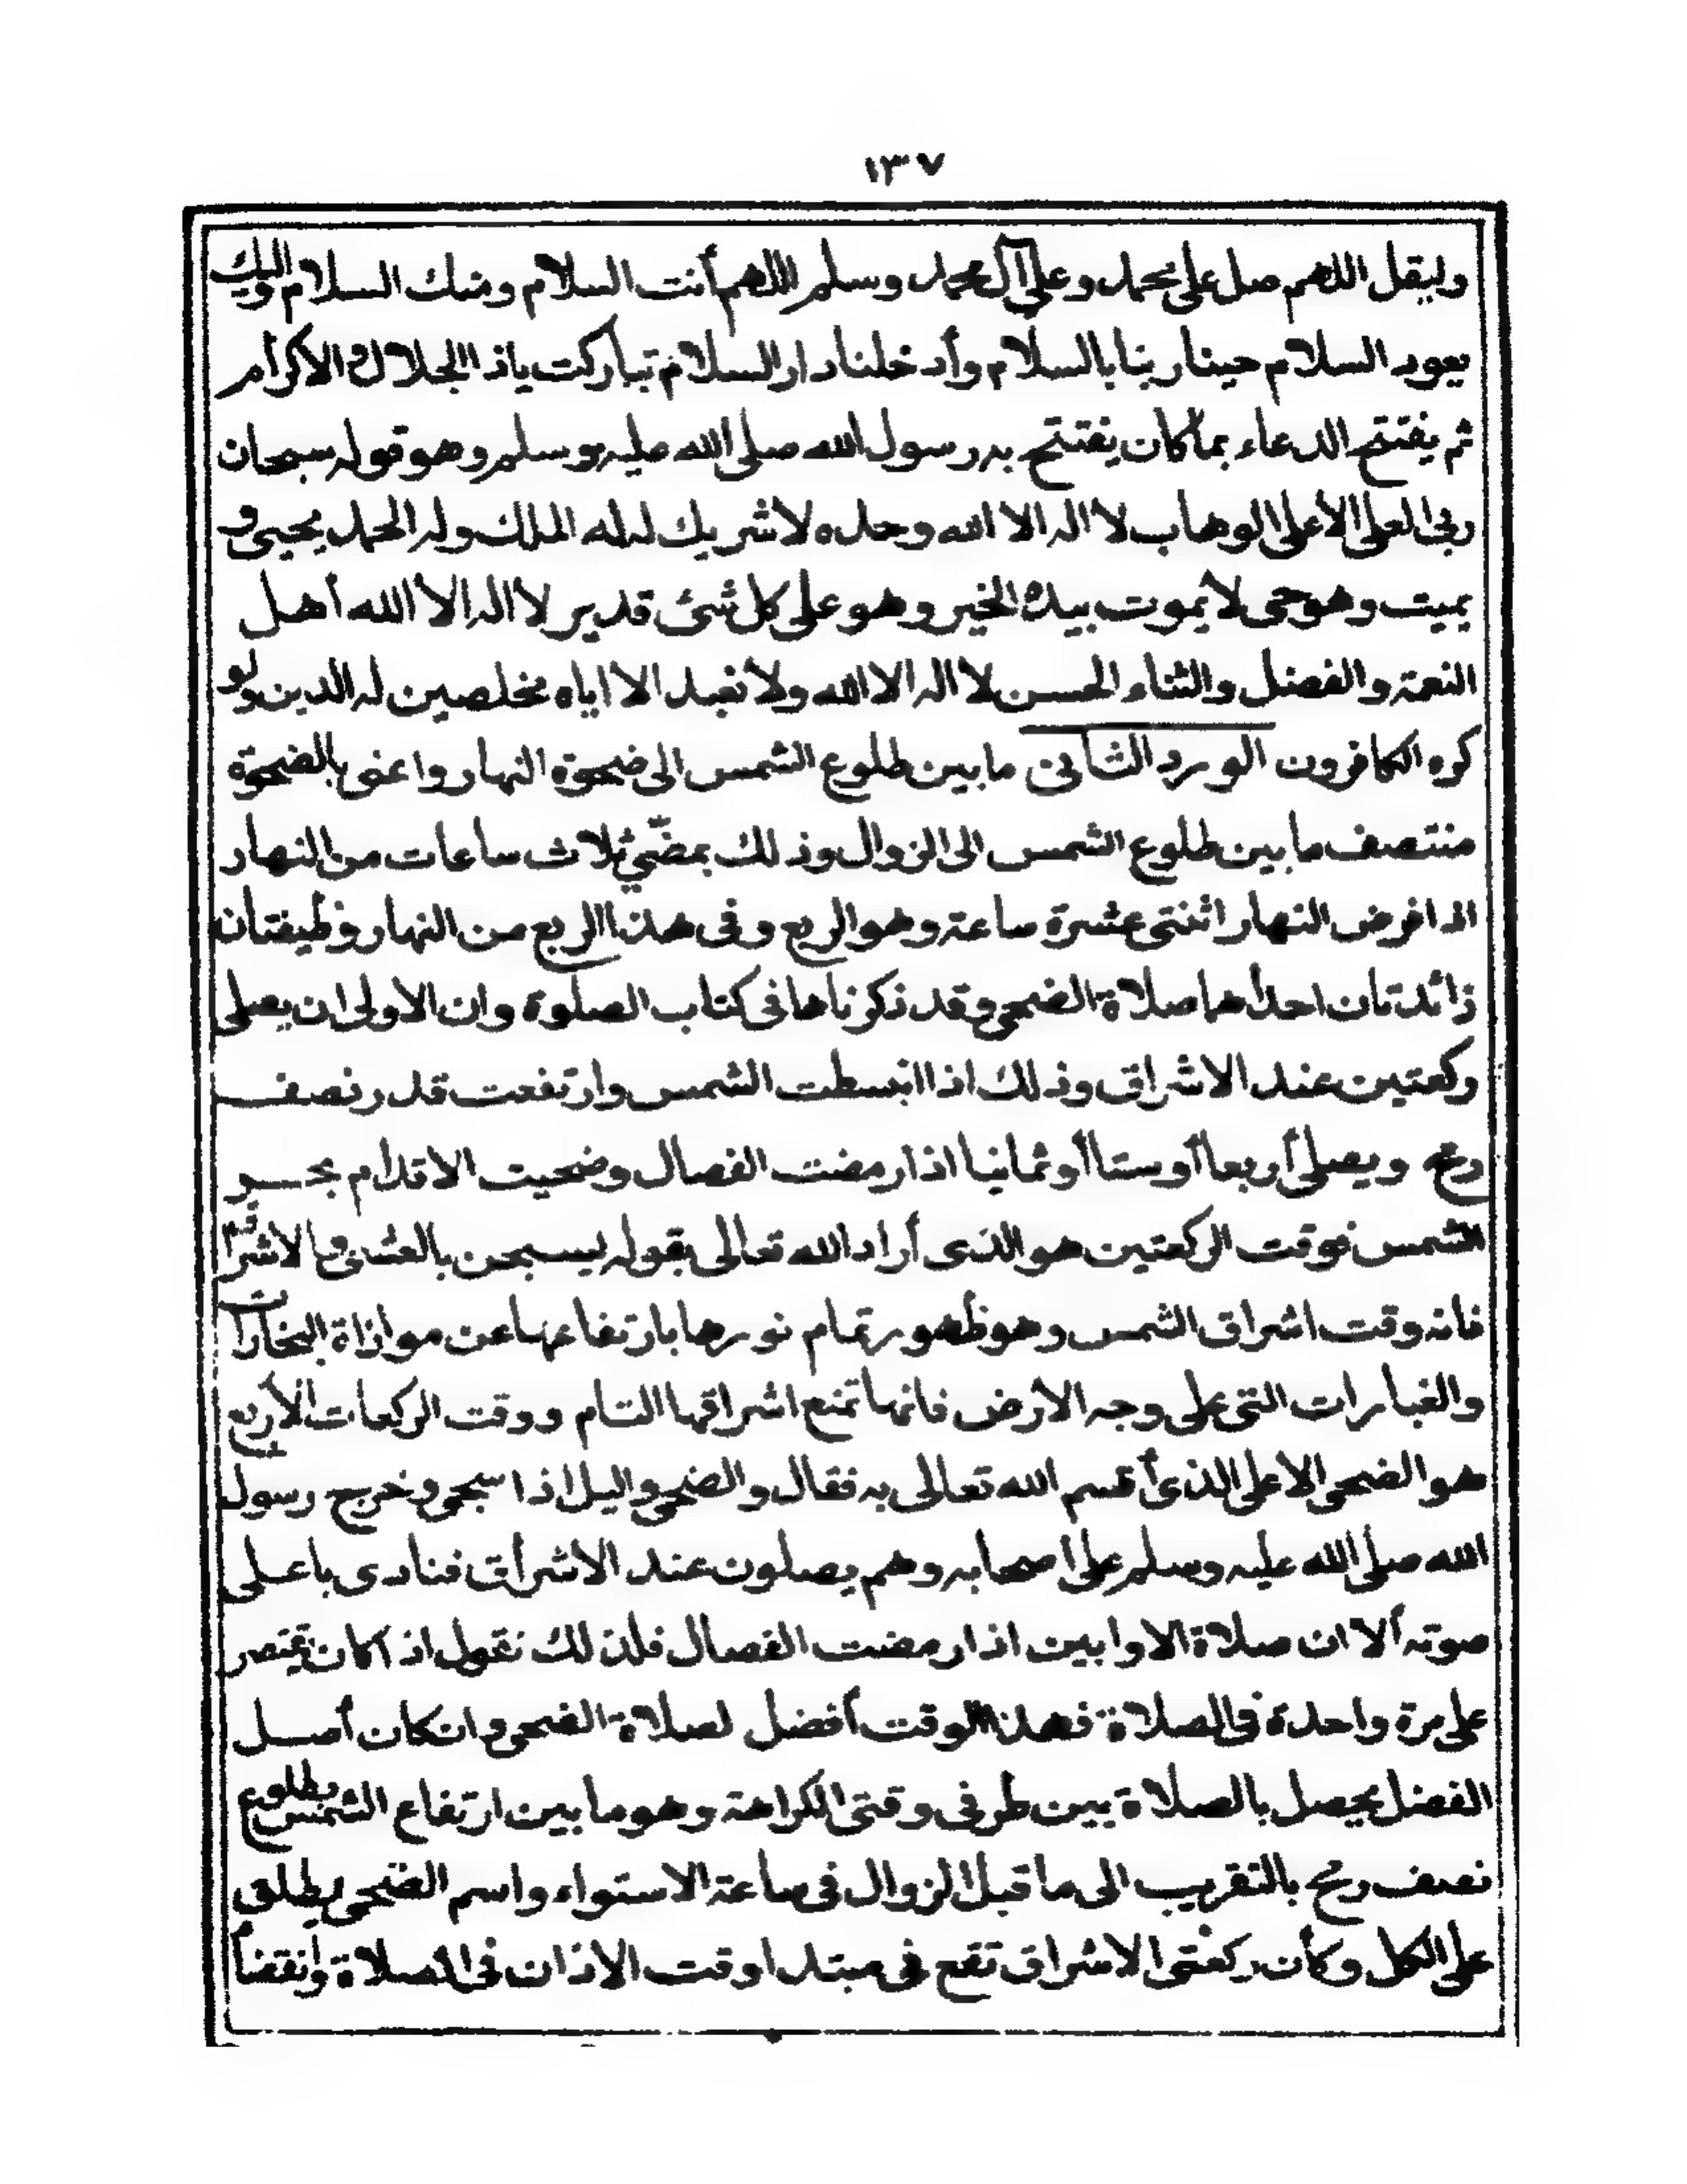 ١٣٧
وليقل اللهم صل على محمد وعلى آل محمد وسلم اللهم أنت السلام ومنك السلام واليك
يعود السلام حينا ربنا بالسلام وأدخلنا دار السلام تباركت ياذا الجلال والاكرام
ثم يفتتح الدعاء بما كان يفتتح به رسول الله صلى الله عليه وسلم وهو قوله سبحان
ربى العلى الأعلى الوهاب لا اله الا الله وحده لا شريك له له الملك وله الحمد يحيى و
يميت وهو حى لا يموت بيده الخير وهو على كل شئ قدير لا اله الا الله أهل
النعمة والفضل والثناء الحسن لا اله الا الله ولا نعبد الا اياه مخلصين له الدين ولو
كره الكافرون الورد الثانى ما بين طلوع الشمس الى ضحوة النهار واعنى بالضحوة
منتصف ما بين طلوع الشمس الى الزوال وذلك بمضيّ ثلاث ساعات من النهار
اذا فرض النهار اثنتى عشرة ساعة وهو الربع وفى هذا الربع من النهار وظيفتان
زائدتان احداهما صلاة الضحى وقد ذكرناها فى كتاب الصلوة وان الاولى ان يصلى
ركعتين عند الاشراق وذلك اذا انبسطت الشمس وارتفعت قدر نصف
رمح ويصلى أربعا أو ستا أو ثمانيا اذا رمضت الفصال وضحيت الاقدام بحر
الشمس فوقت الركعتين هو الذى أراد الله تعالى بقوله يسبحن بالعشى والاشراق
فانه وقت اشراق الشمس وهو ظهور تمام نورها بارتفاعها عن موازاة البخارات
والغبارات التى على وجه الارض فانها تمنع اشراقها التام ووقت الركعات الأربع
هو الضحى الاعلى الذى أقسم الله تعالى به فقال والضحى واليل اذا سجى وخرج رسول
الله صلى الله عليه وسلم على اصحابه وهم يصلون عند الاشراق فنادى باعلى
صوته ألا ان صلاة الاوابين اذا رمضت الفصال فلذلك نقول اذا كان يقتصر
على مرة واحدة فى الصلاة فهذا الوقت أفضل لصلاة الضحى وان كان أصل
الفضل يحصل بالصلاة بين طرفى وقتى الكراهة وهو ما بين ارتفاع الشمس بطلوع
نصف رمح بالتقريب الى ما قبل الزوال فى ساعة الاستواء واسم الضحى يطلق
على الكل وكأن ركعتى الاشراق تقع فى مبتدا وقت الاذان فى الصلاة وانقضا